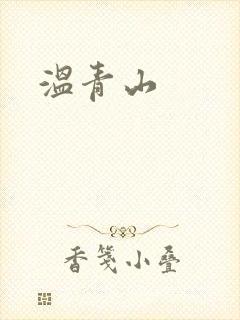 温青山
香笺小叠